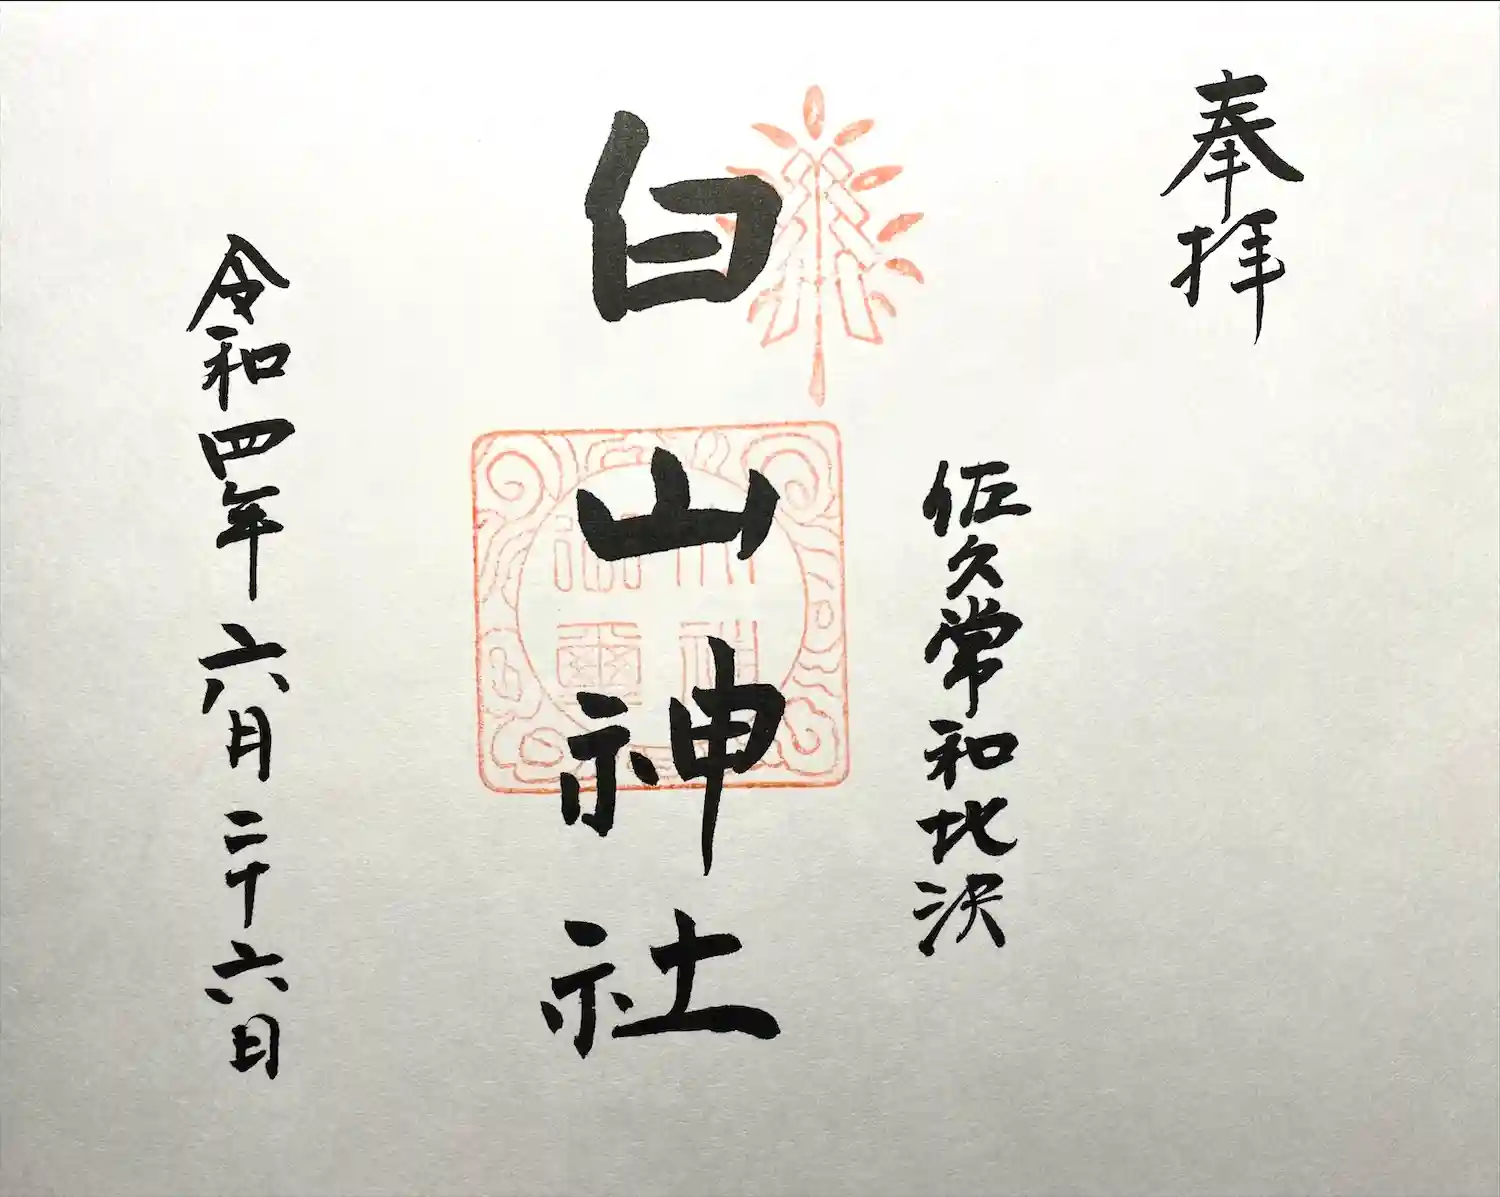 奉拝
佐久常和比沢
白山神社
令和四年六月二十六日